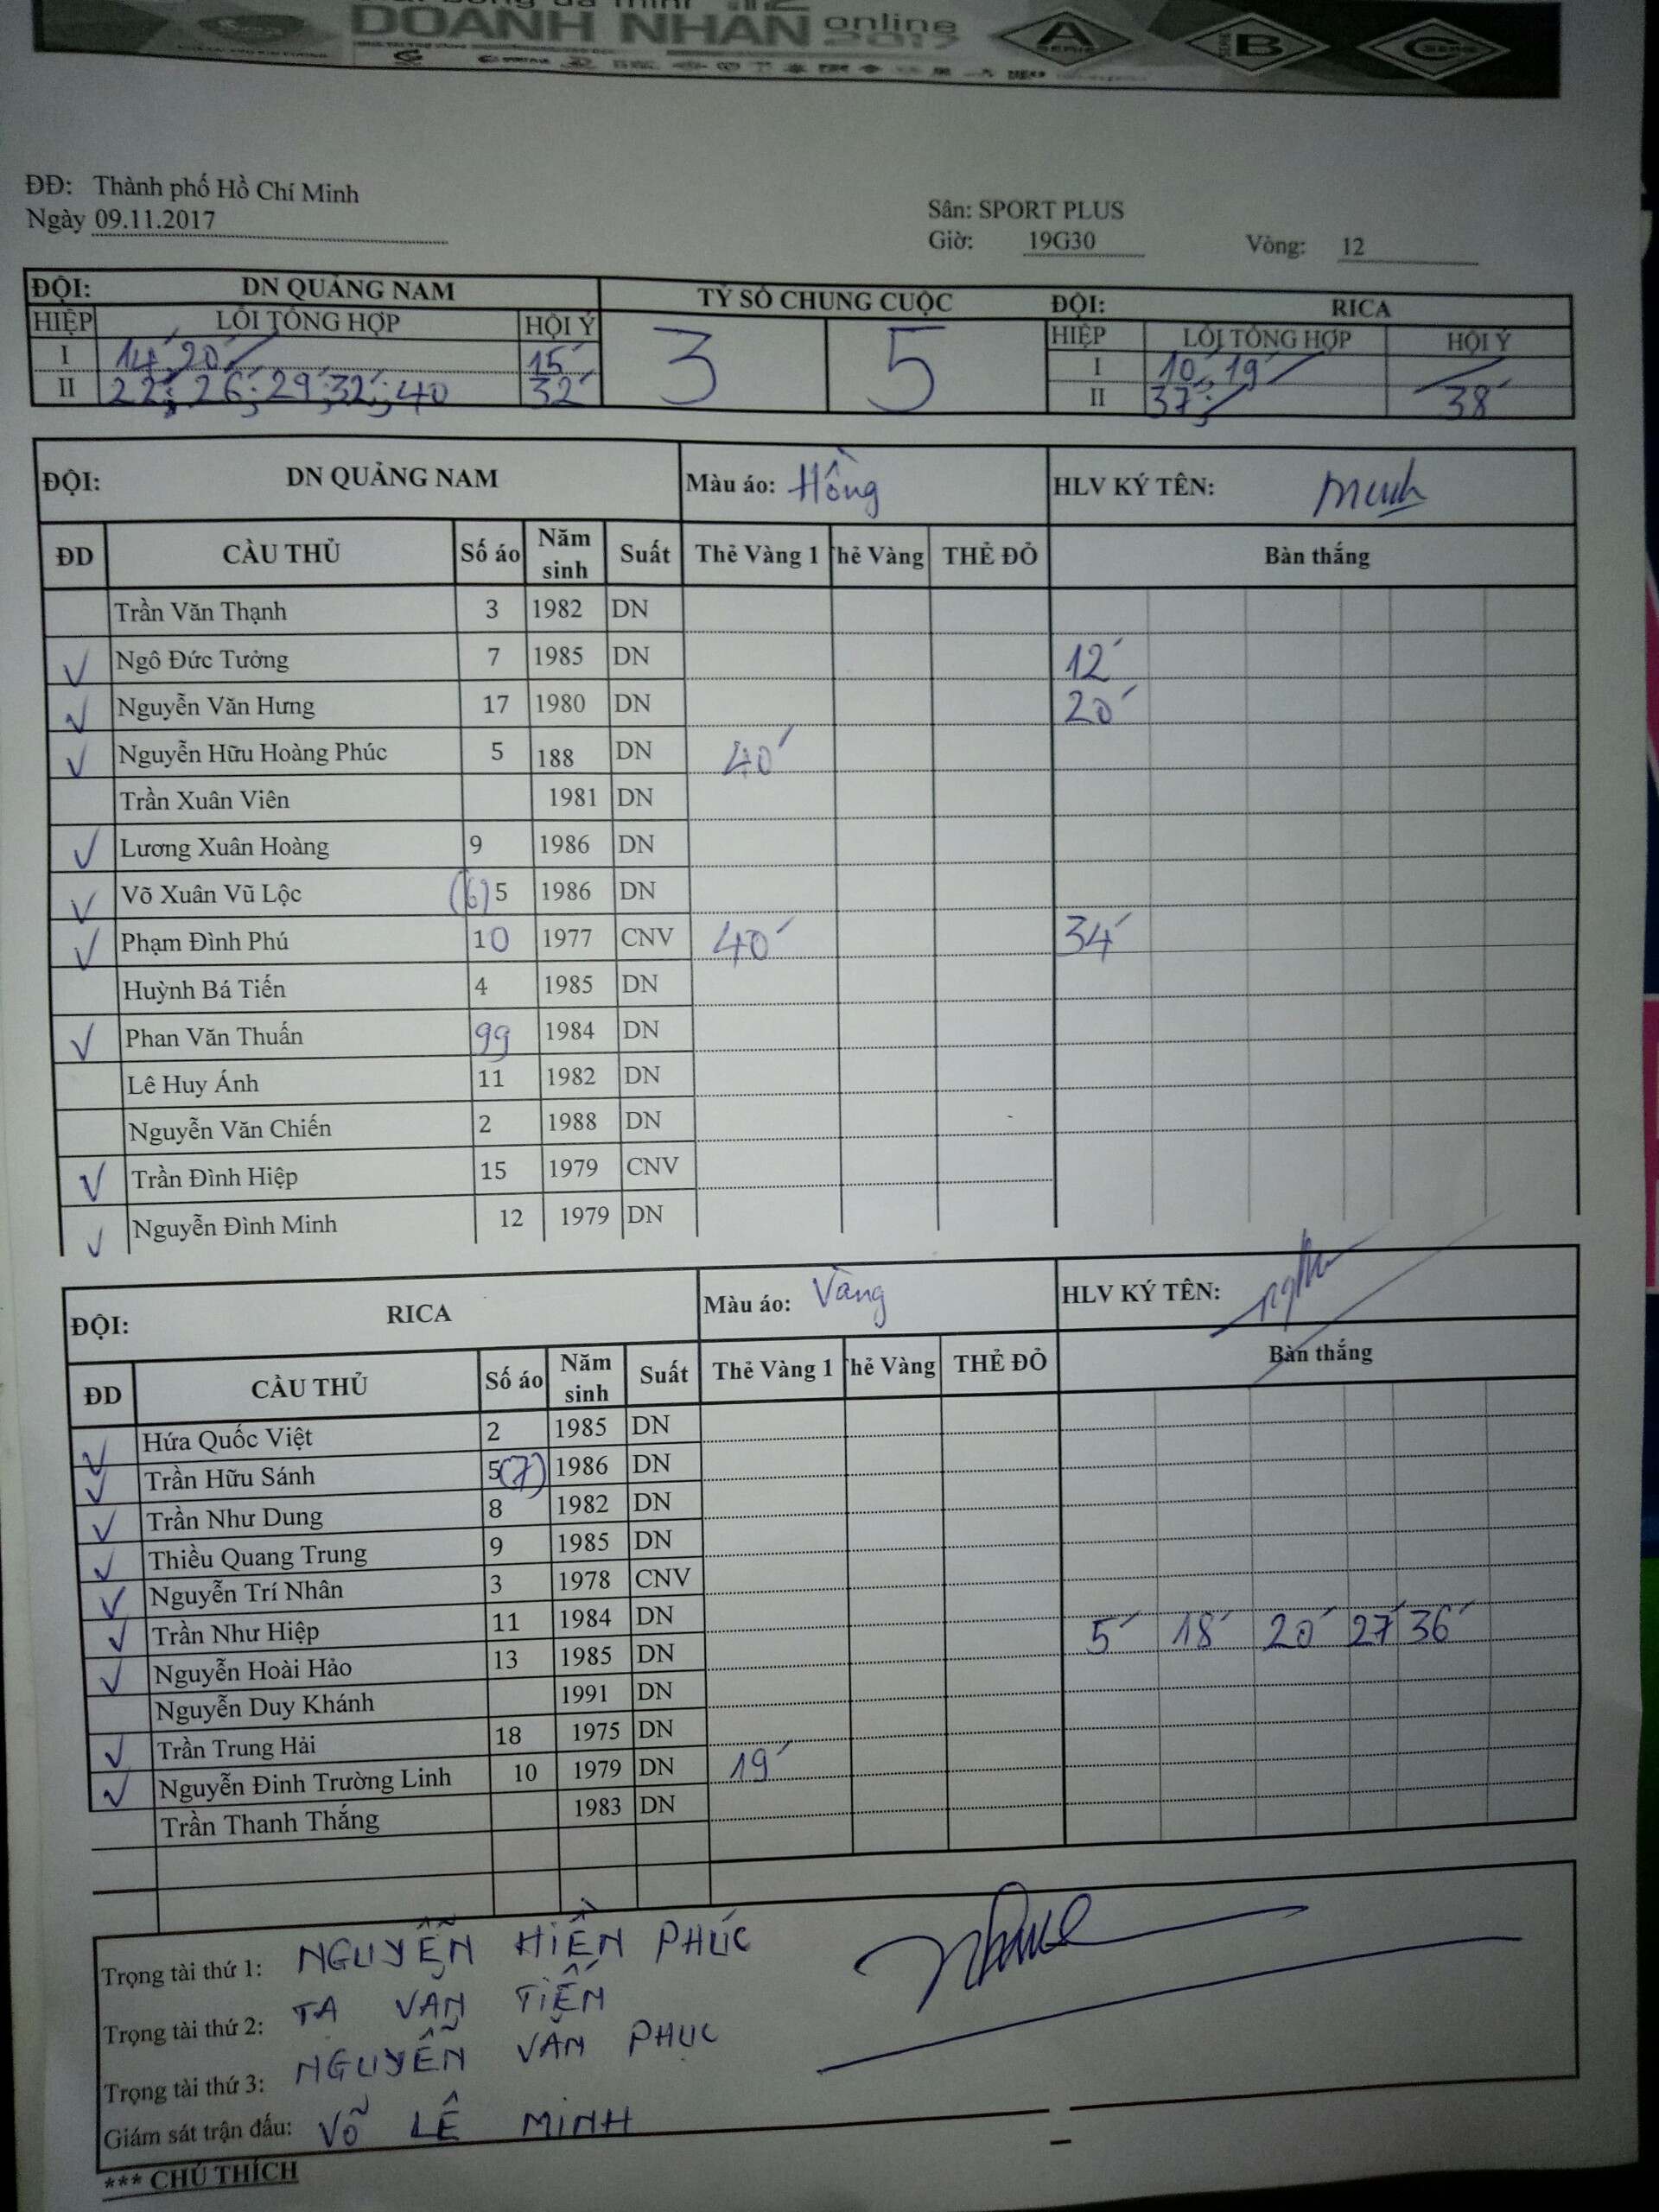 DOANH NHÂN online
2017
A
SERIE
B
SERIE
C
SERIE
ĐĐ: Thành phố Hồ Chí Minh
Ngày 09.11.2017
Sân: SPORT PLUS
Giờ: 19G30 Vòng: 12
ĐỘI: DN QUẢNG NAM TỶ SỐ CHUNG CUỘC ĐỘI: RICA
HIỆP LỖI TỔNG HỢP HỘI Ý 3 5 HIỆP LỖI TỔNG HỢP HỘI Ý
I 14′ 20′ 15′ I 10′, 19′
II 22′; 26′; 29′; 32′; 40 32′ II 37′; 38′
ĐỘI: DN QUẢNG NAM Màu áo: Hồng HLV KÝ TÊN: Minh
ĐD CẦU THỦ Số áo Năm sinh Suất Thẻ Vàng 1 Thẻ Vàng THẺ ĐỎ Bàn thắng
Trần Văn Thạnh 3 1982 DN
√ Ngô Đức Tưởng 7 1985 DN 12′
√ Nguyễn Văn Hưng 17 1980 DN 20′
√ Nguyễn Hữu Hoàng Phúc 5 188 DN 40′
Trần Xuân Viên 1981 DN
√ Lương Xuân Hoàng 9 1986 DN
√ Võ Xuân Vũ Lộc (6) 5 1986 DN
√ Phạm Đình Phú 10 1977 CNV 40′ 34′
Huỳnh Bá Tiến 4 1985 DN
√ Phan Văn Thuấn 99 1984 DN
Lê Huy Ánh 11 1982 DN
Nguyễn Văn Chiến 2 1988 DN
√ Trần Đình Hiệp 15 1979 CNV
√ Nguyễn Đình Minh 12 1979 DN
ĐỘI: RICA Màu áo: Vàng HLV KÝ TÊN:
ĐD CẦU THỦ Số áo Năm sinh Suất Thẻ Vàng 1 Thẻ Vàng THẺ ĐỎ Bàn thắng
√ Hứa Quốc Việt 2 1985 DN
√ Trần Hữu Sánh 5(7) 1986 DN
√ Trần Như Dung 8 1982 DN
√ Thiều Quang Trung 9 1985 DN
√ Nguyễn Trí Nhân 3 1978 CNV
√ Trần Như Hiệp 11 1984 DN 5′ 18′ 20′ 27′ 36′
√ Nguyễn Hoài Hảo 13 1985 DN
Nguyễn Duy Khánh 1991 DN
√ Trần Trung Hải 18 1975 DN
√ Nguyễn Đinh Trường Linh 10 1979 DN 19′
Trần Thanh Thắng 1983 DN
Trọng tài thứ 1: NGUYỄN HIỀN PHÚC
Trọng tài thứ 2: TẠ VĂN TIẾN
Trọng tài thứ 3: NGUYỄN VĂN PHỤC
Giám sát trận đấu: VÕ LÊ MINH
*** CHÚ THÍCH